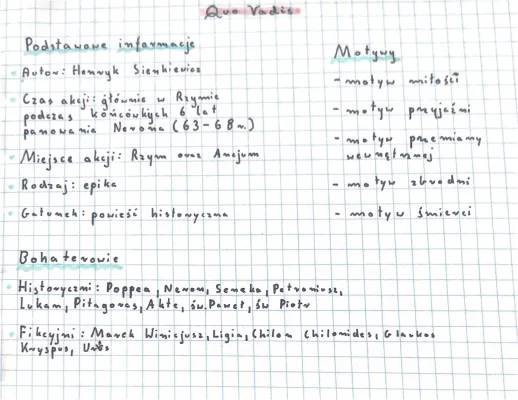 Quo Vadis
Podstawowe informacje
Autor: Henryk Sienkiewicz
Czas akcji: głównie w Rzymie
podczas końcówkych 6 lat
panowania Nerona (63-68 r.)
Miejsce akcji: Rzym oraz Ancjum
Rodzaj: epika
Gatunek: powieść historyczna
Motywy
- motyw miłości
- motyw przyjaźni
- motyw przemiany
wewnętrznej
- motyw zbrodni
- motyw śmierci
Bohaterowie
Historyczni: Poppea, Neron, Seneka, Petroniusz,
Lukan, Pitagoras, Akte, św. Paweł, św Piotr
Fikcyjni: Marek Winicjusz, Ligia, Chilon Chilonides, Glaukos
Kryspus, Ursus